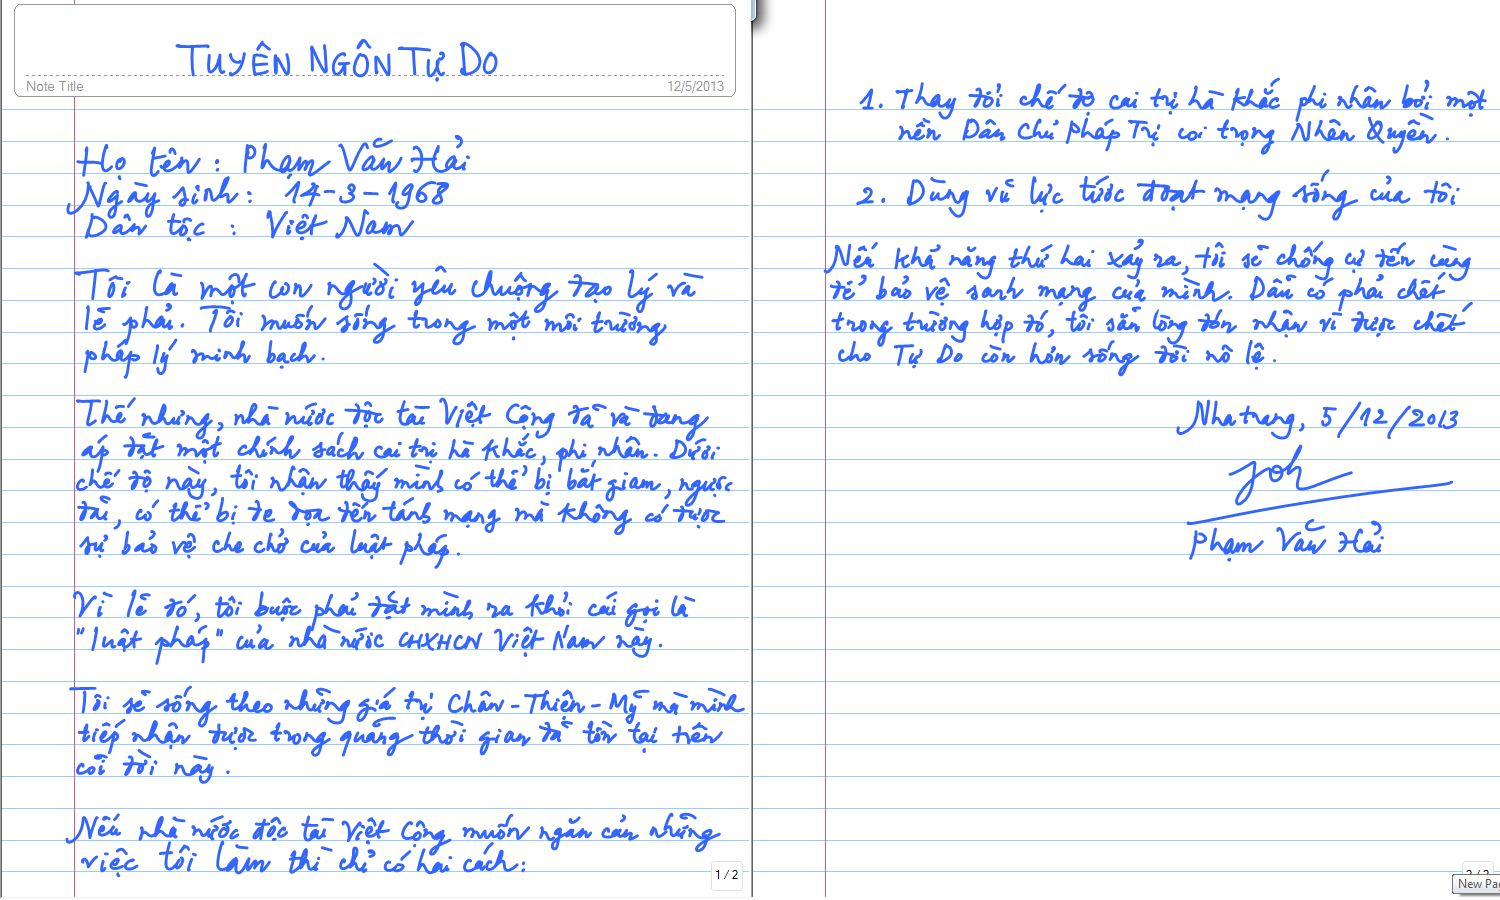 TUYÊN NGÔN TỰ DO
Note Title
12/5/2013
Họ tên : Phạm Văn Hải
Ngày sinh : 14-3-1968
Dân tộc : Việt Nam
Tôi là một con người yêu chuộng đạo lý và
lẽ phải. Tôi muốn sống trong một môi trường
pháp lý minh bạch.
Thế nhưng, nhà nước độc tài Việt Cộng đã và đang
áp đặt một chính sách cai trị hà khắc, phi nhân. Dưới
chế độ này, tôi nhận thấy mình có thể bị bắt giam, ngược
đãi, có thể bị đe dọa đến tánh mạng mà không có được
sự bảo vệ che chở của luật pháp.
Vì lẽ đó, tôi buộc phải đặt mình ra khỏi cái gọi là
"luật pháp" của nhà nước CHXHCN Việt Nam này.
Tôi sẽ sống theo những giá trị Chân - Thiện - Mỹ mà mình
tiếp nhận được trong quãng thời gian đã tồn tại trên
cõi đời này.
Nếu nhà nước độc tài Việt Cộng muốn ngăn cản những
việc tôi làm thì chỉ có hai cách:
1 / 2
1. Thay đổi chế độ cai trị hà khắc phi nhân bởi một
nền Dân Chủ Pháp Trị coi trọng Nhân Quyền.
2. Dùng vũ lực tước đoạt mạng sống của tôi
Nếu khả năng thứ hai xảy ra, tôi sẽ chống cự đến cùng
để bảo vệ sanh mạng của mình. Dẫu có phải chết
trong trường hợp đó, tôi sẵn lòng đón nhận vì được chết
cho Tự Do còn hơn sống đời nô lệ.
Nha trang, 5/12/2013
Phạm Văn Hải
New Pag